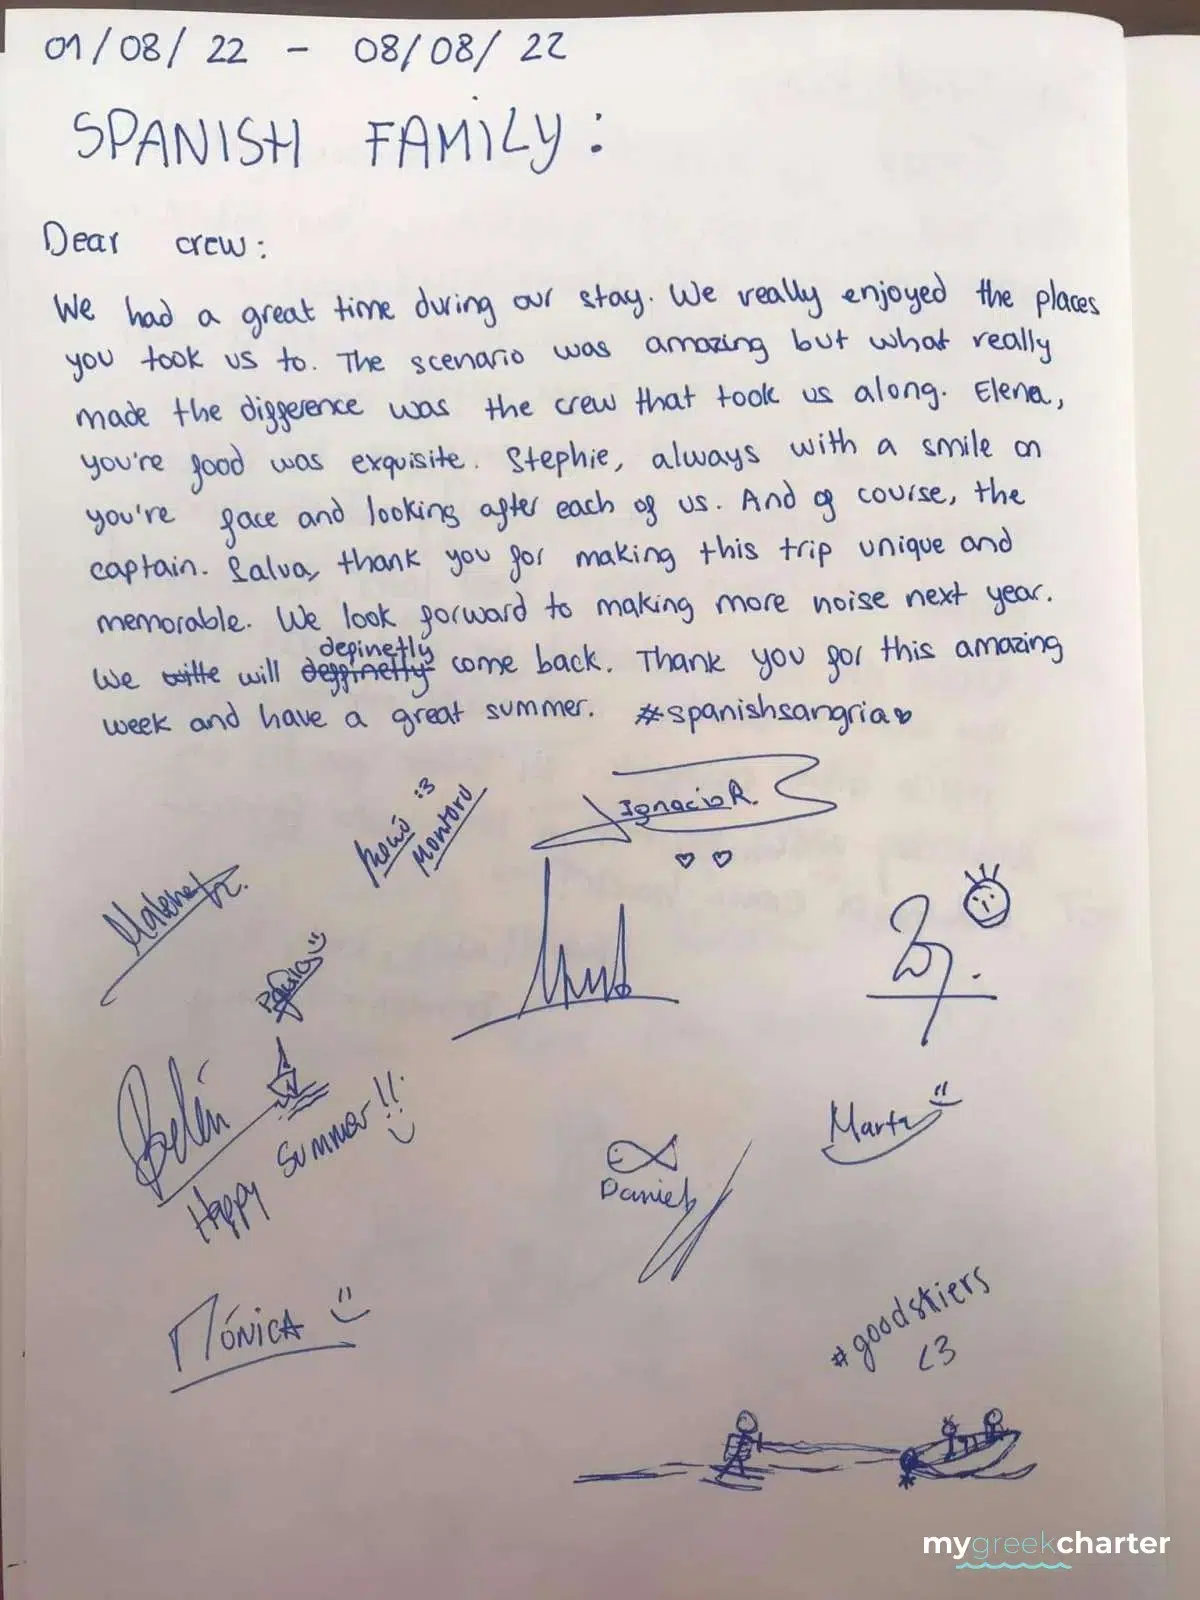 01/08/22 - 08/08/22
SPANISH FAMILY:
Dear crew:
We had a great time during our stay. We really enjoyed the places
you took us to. The scenario was amazing but what really
made the difference was the crew that took us along. Elena,
you're food was exquisite. Stephie, always with a smile on
you're face and looking after each of us. And of course, the
captain. Salva, thank you for making this trip unique and
memorable. We look forward to making more noise next year.
definetly
We will come back. Thank you for this amazing
week and have a great summer. #spanishsangria
:3
Montoro
Ignacio R.
Paula
Belén
Happy Summer!!
Marta
Daniel
Mónica
#goodskiers
<3
mygreekcharter